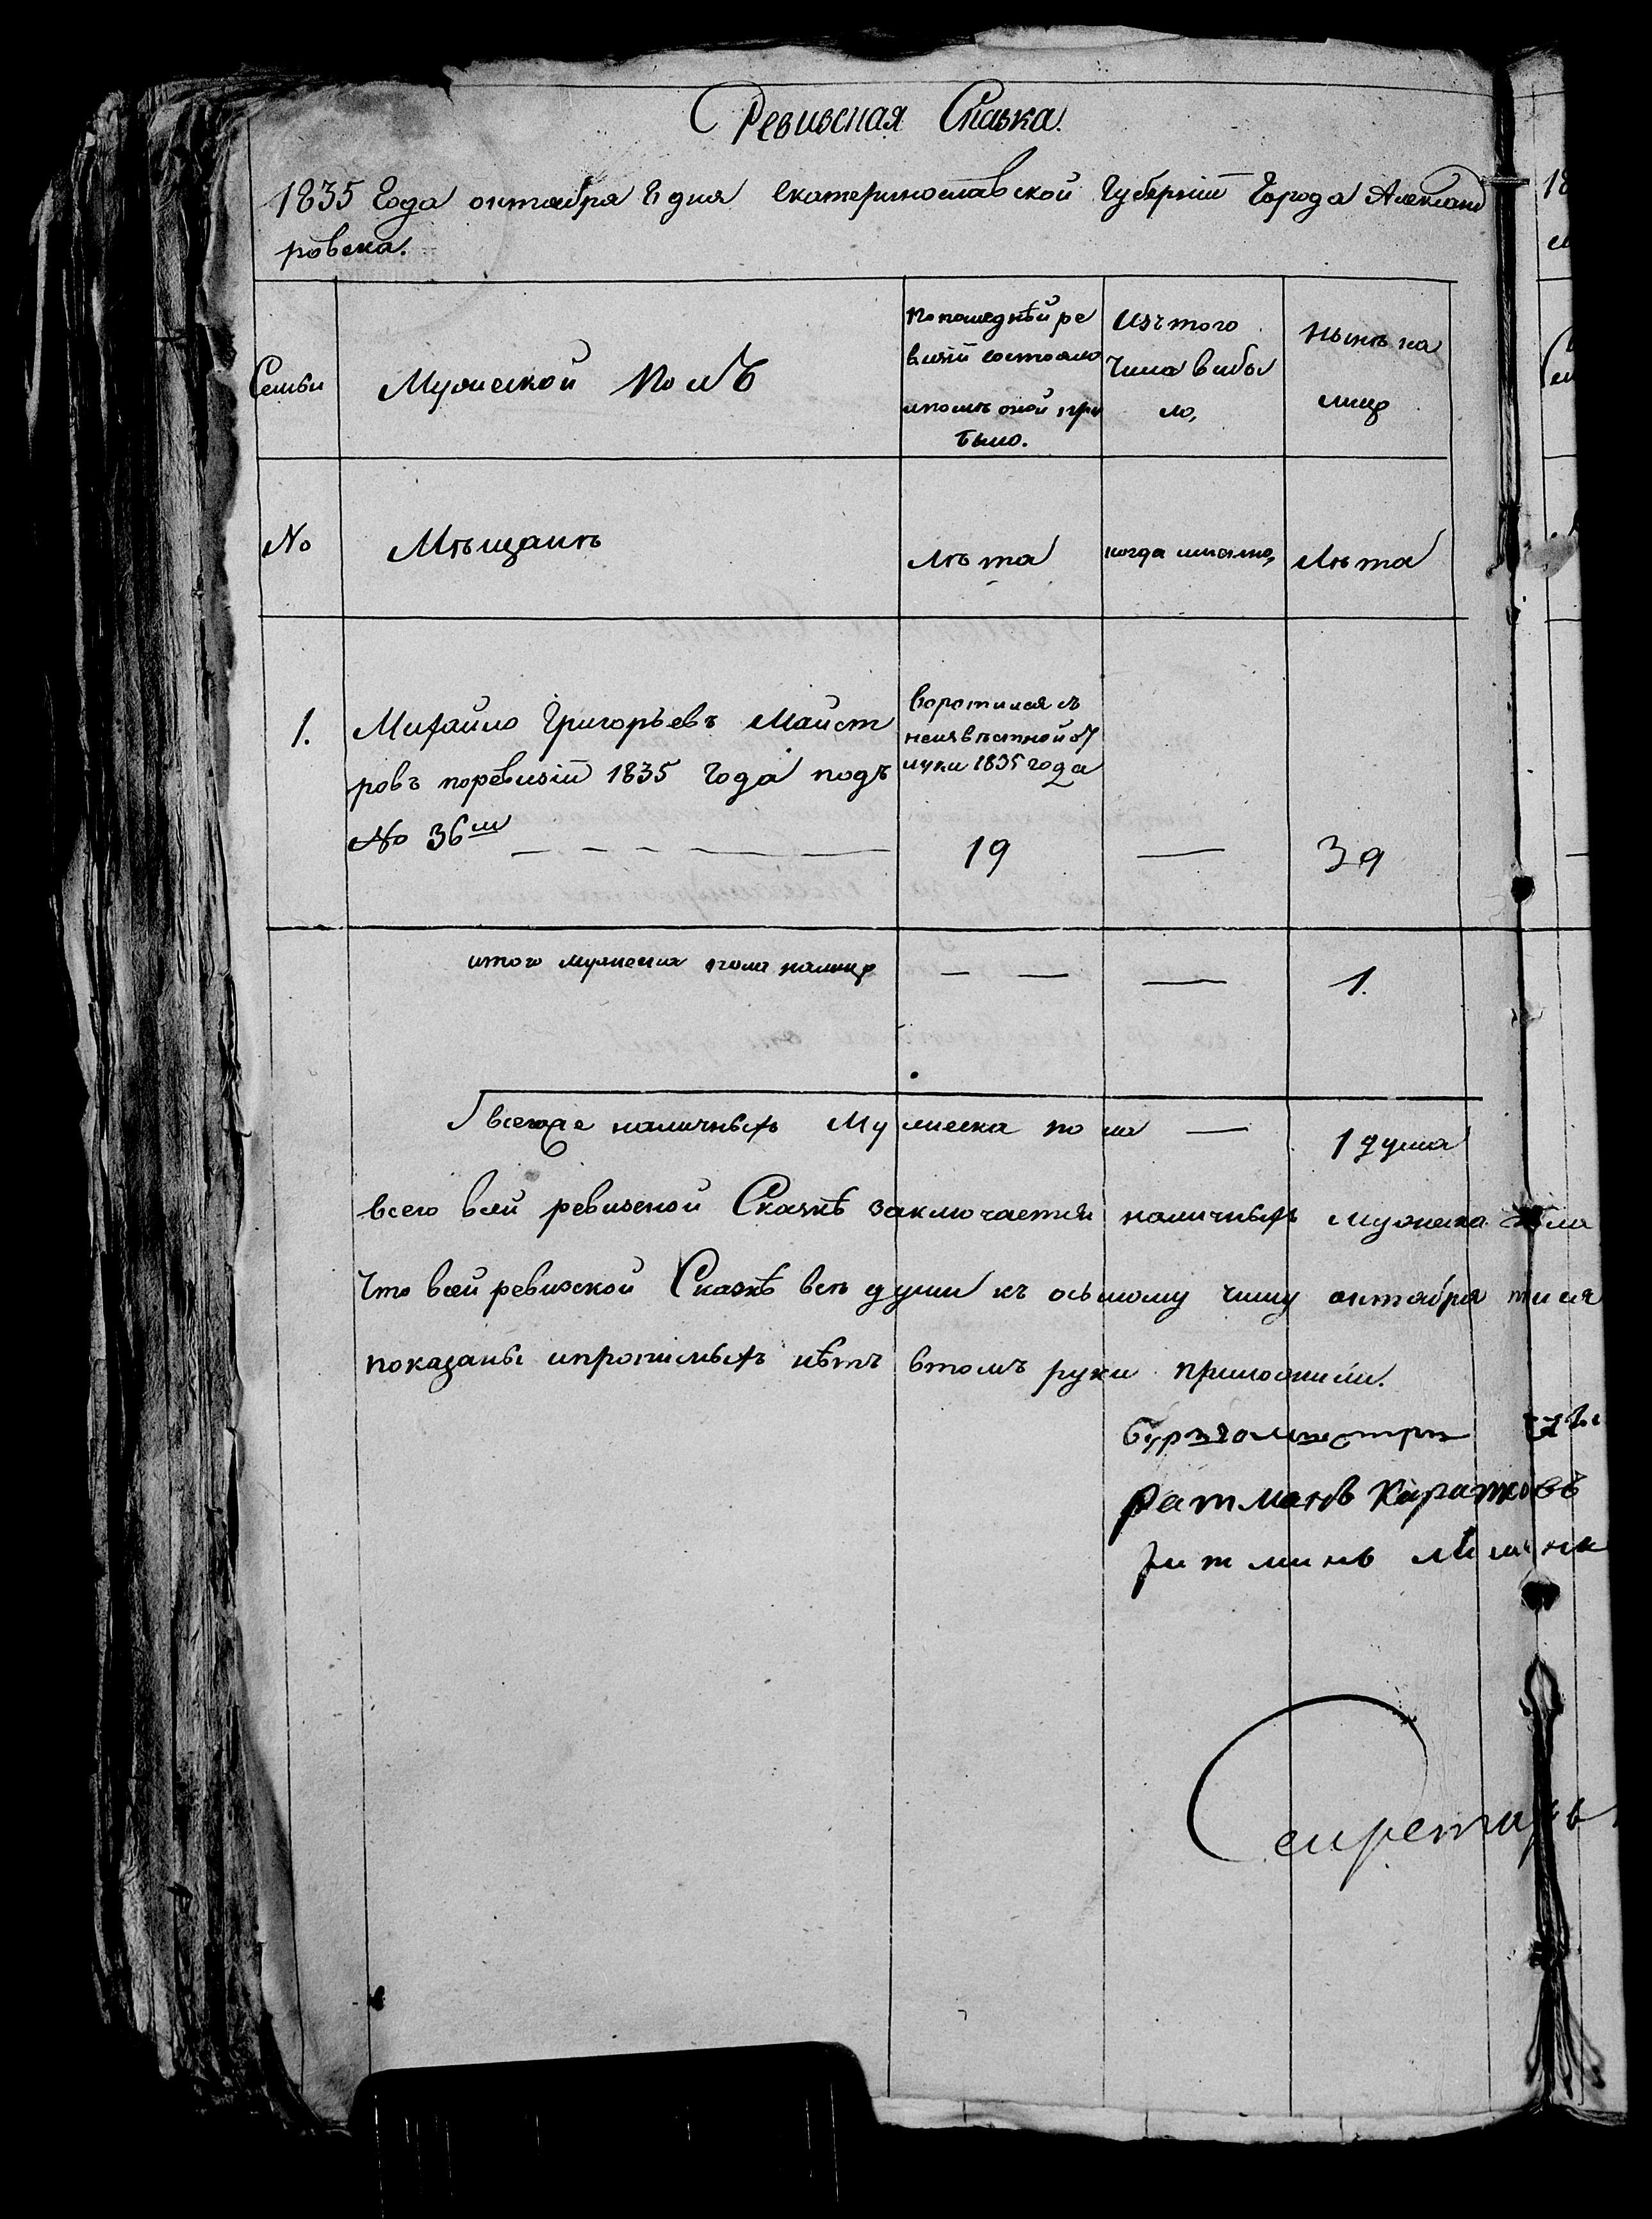 Ревизская Сказка.
1835 Года октября 8 дня Екатеринославской Губерніи Города Александ
ровска.
Семьи
Мужеской Полъ
По последней ре
визіи состояло
и после оной при
было.
Изъ того
числа выбы
ло,
Нынѣ на
лицо
No
Мѣщанѣ
Лѣта
когда имянно,
Лѣта
1.
Михайло Григорьевъ Майст
ровъ поревизіи 1835 Года подъ
No 36ш
воротился съ
неизвѣстной от
лучки 1835 года
19 — 39
итого мужеска пола налицо — — — 1.
Всегоже наличныхъ Мужеска пола — 1 душа
всего всей ревизской Сказкѣ заключается наличныхъ мужеска пола
Что всей ревизской Сказкѣ всѣ души къ осьмому числу октября
показаны ипрописныхъ нѣтъ втомъ руки приложили.
Бургомистръ
Ратманъ Каратковъ
Ратманъ
Секретарь
18